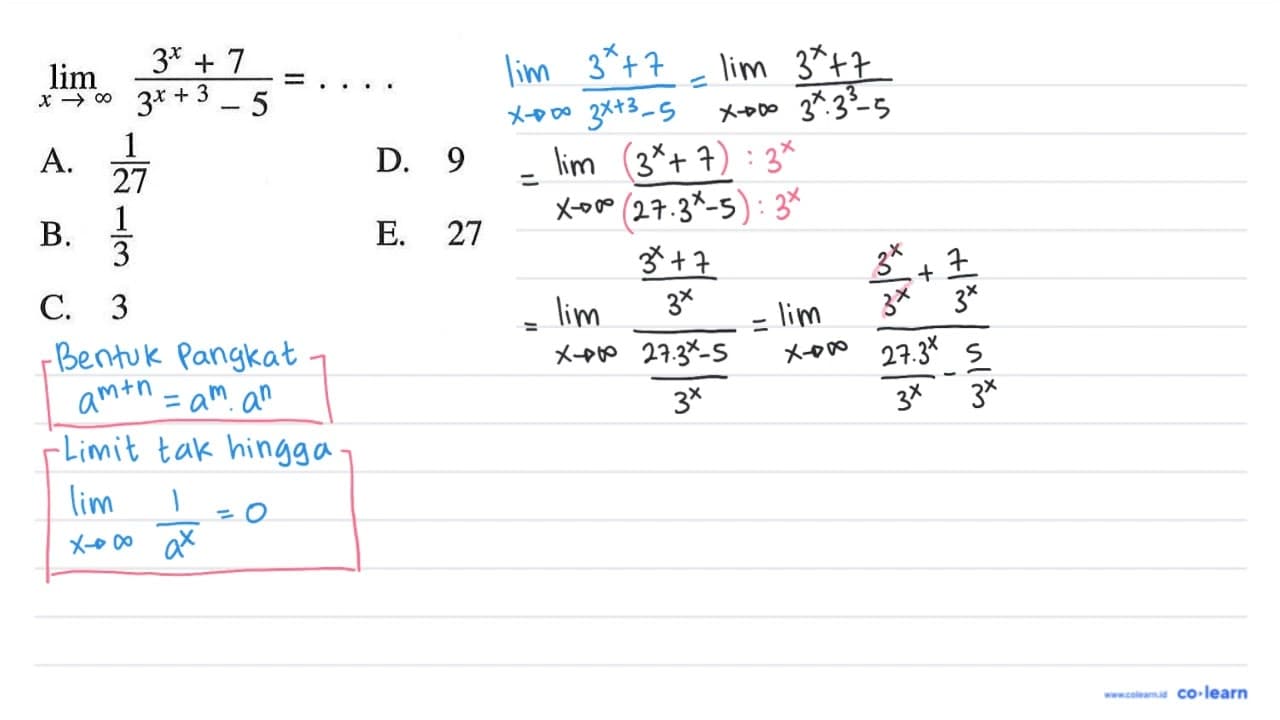 lim x → ∞ (3^x + 7)/(3^(x + 3) – 5) = . . . .
A. 1/27
B. 1/3
C. 3
D. 9
E. 27
Bentuk Pangkat
a^(m+n) = a^m . a^n
Limit tak hingga
lim x→∞ 1/a^x = 0
lim x→∞ (3^x+7)/(3^(x+3)-5) = lim x→∞ (3^x+7)/(3^x.3^3-5)
= lim x→∞ ((3^x+7) : 3^x)/((27.3^x-5) : 3^x)
= lim x→∞ ((3^x+7)/3^x)/((27.3^x-5)/3^x) = lim x→∞ (3^x/3^x + 7/3^x)/(27.3^x/3^x - 5/3^x)
www.colearn.id co·learn